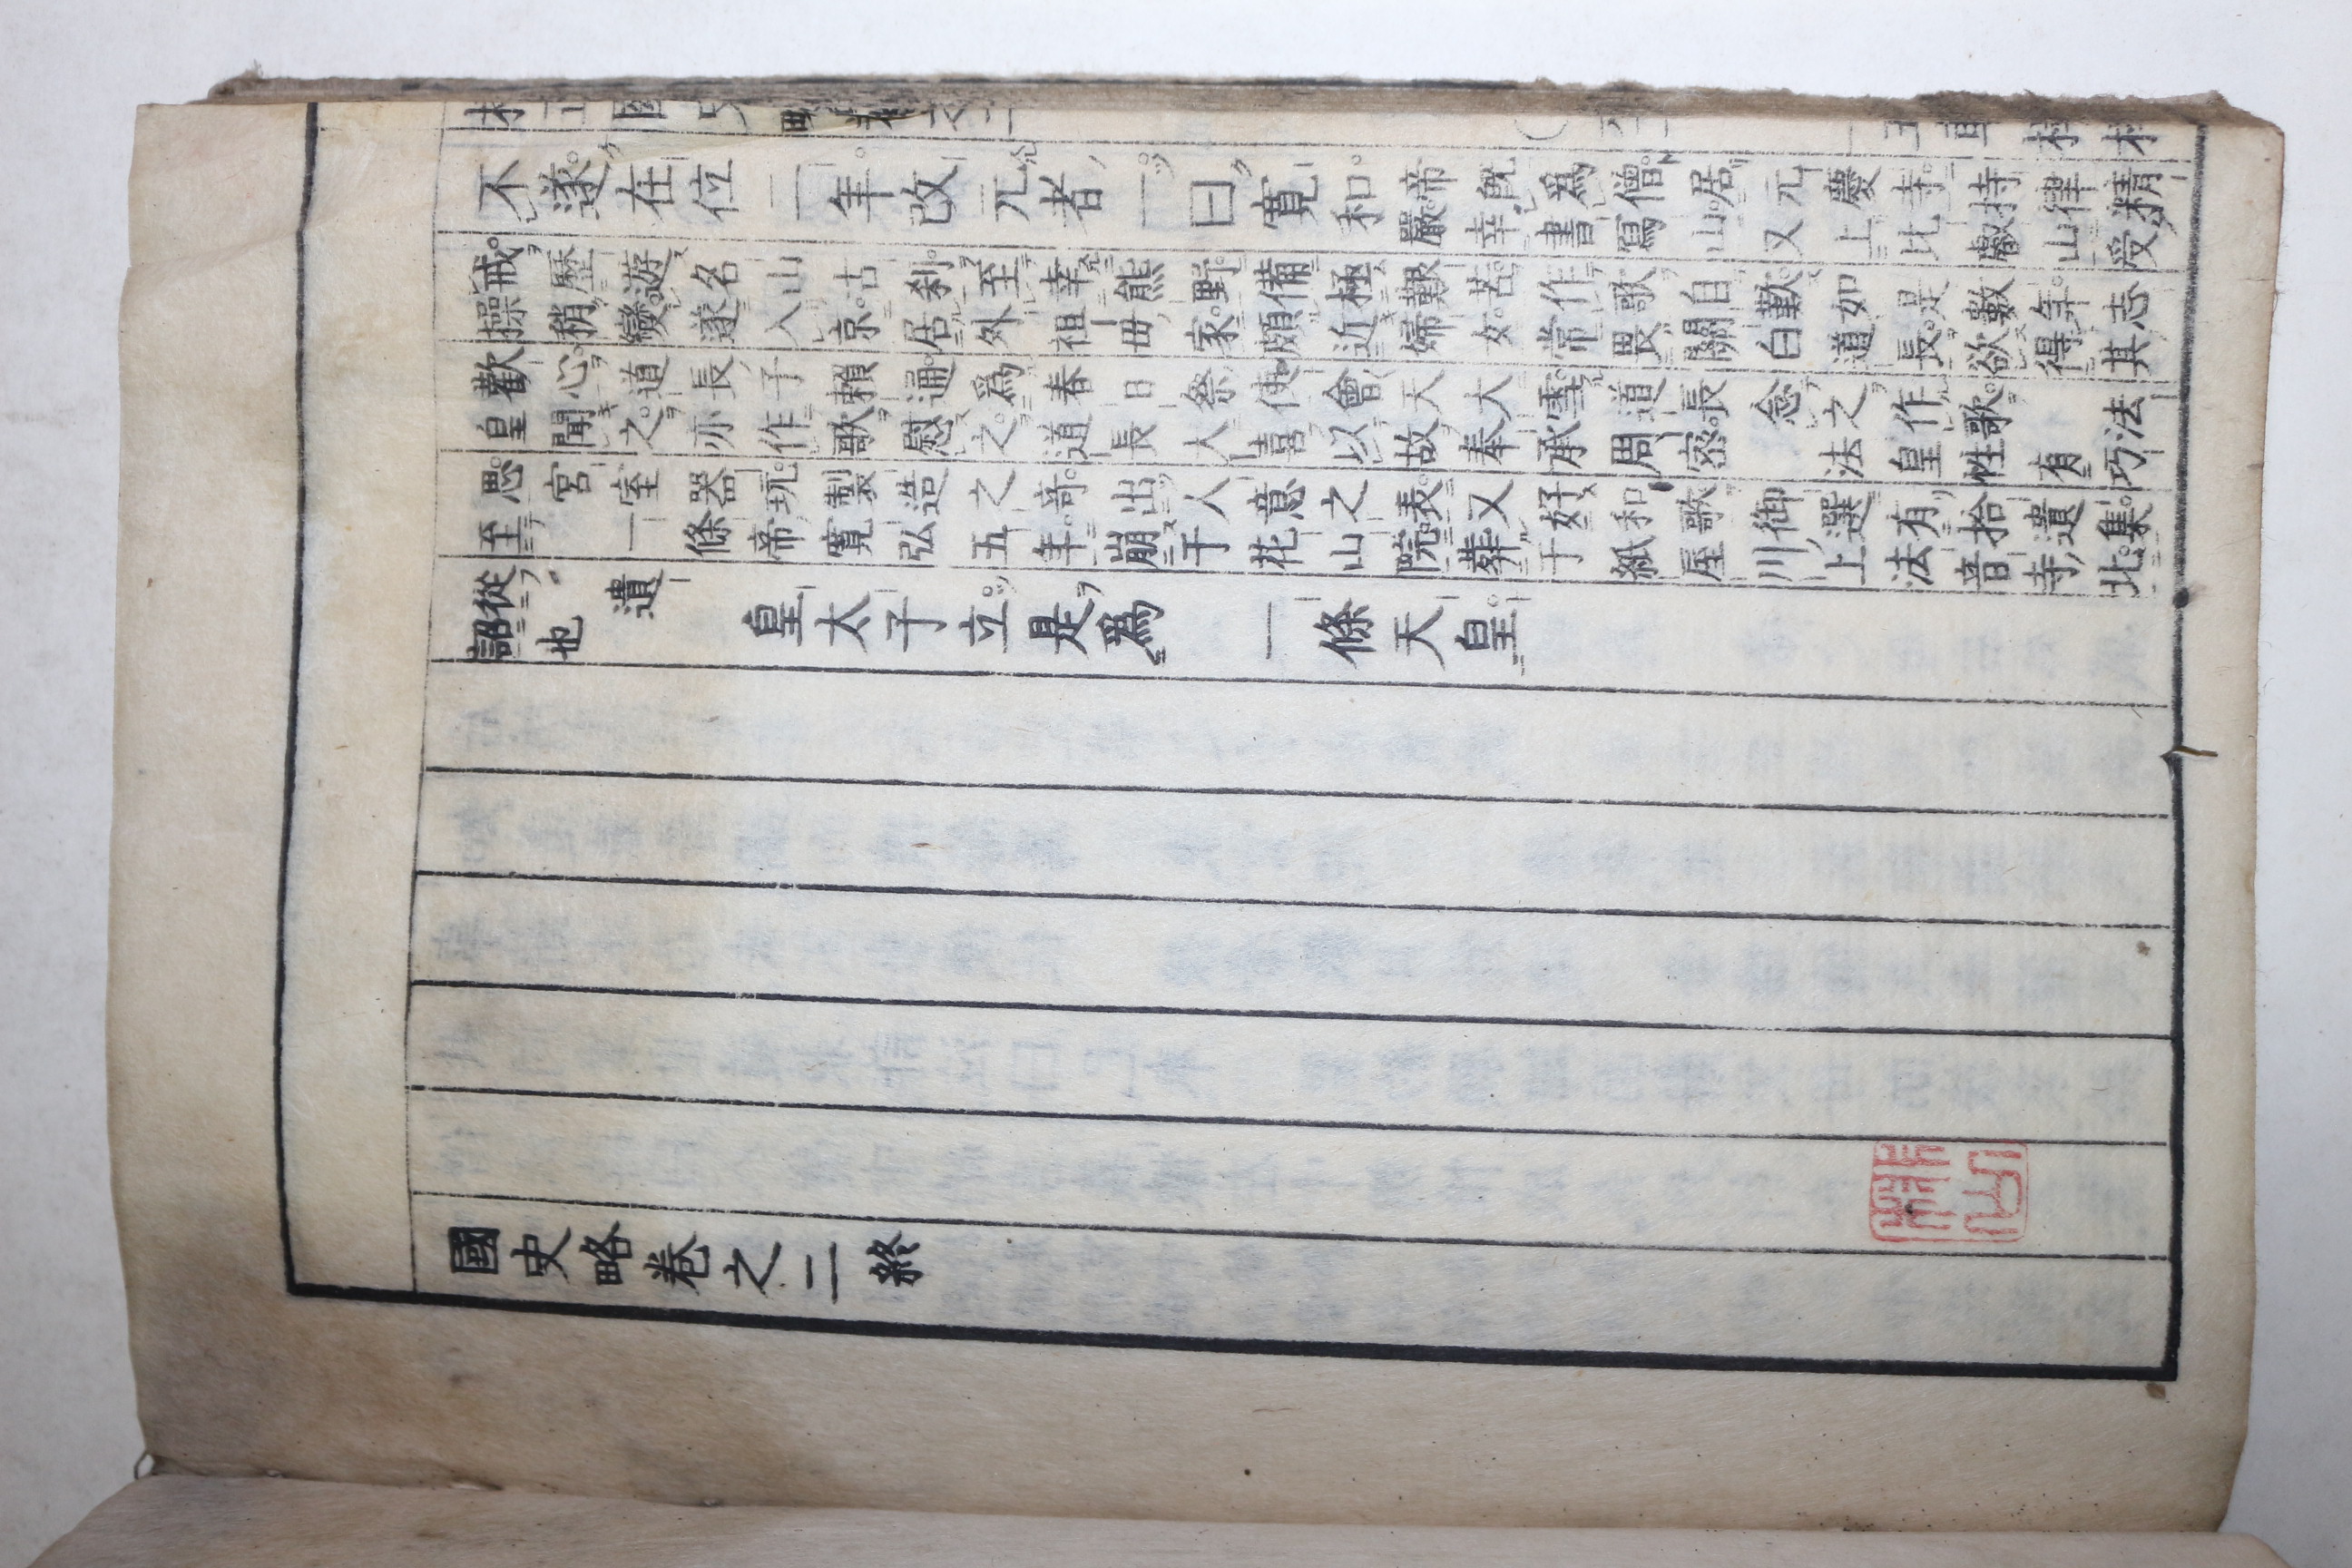 國史略卷之二
不遂在位二年改元者一曰寛和
帝既爲僧居元慶寺持律精
嚴幸書寫山又上比叡山受
戒歷遊名山古刹至幸熊野備極艱苦作歌自歎如是數年志
操稍變遂入京居外祖毋家頗近婦女常畏關白道長欲得其
歡心道長子賴通爲春日祭使會天大雪道長念之作歌 法
皇聞之亦作歌慰之道長大喜以故奉承周密 法皇性有巧
思宮室器玩製造之奇出人意之表又好和歌御選有拾遺集
至 一條帝寬弘五年崩于花山院葬于紙屋川上法音寺北
從 遺
詔也
皇太子立是爲 一條天皇
國史略卷之二終